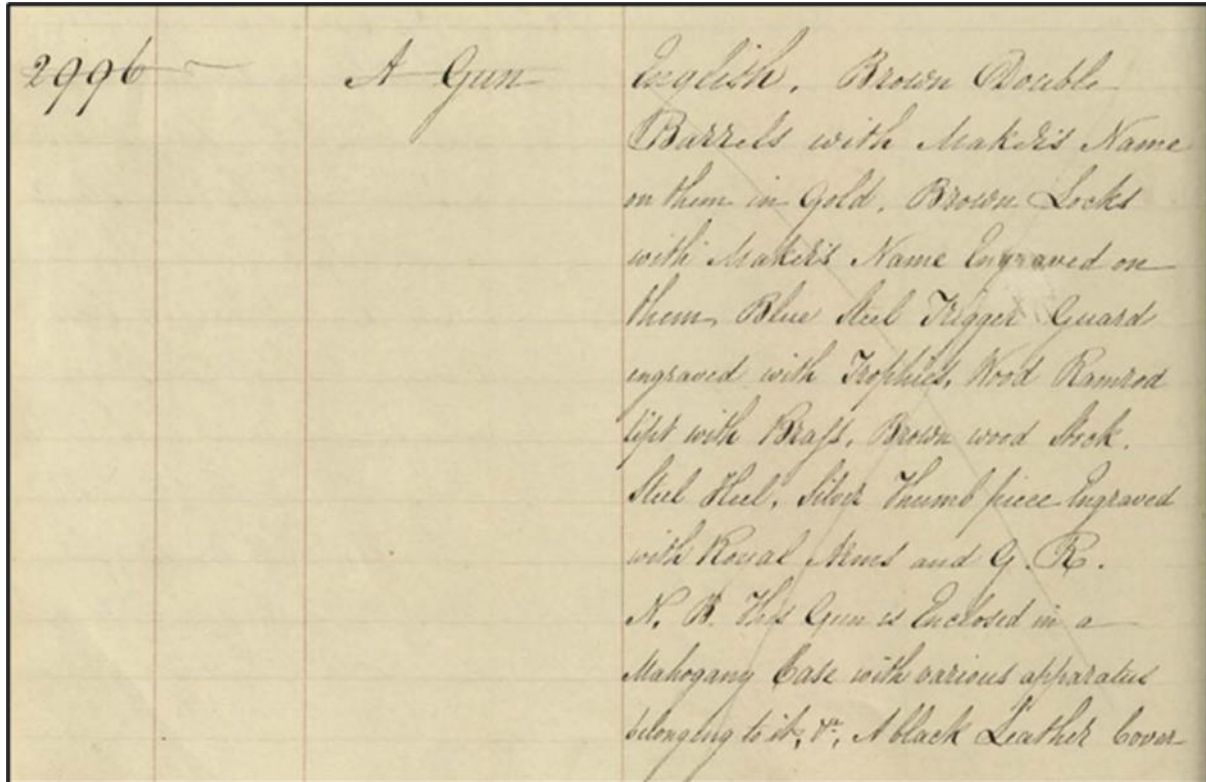 2996 A Gun English, Brown Double
Barrels with Maker's Name
on them in Gold. Brown Locks
with Maker's Name Engraved on
them, Blue Steel Trigger Guard
engraved with Trophies, Wood Ramrod
tipt with Brass, Brown wood Stock.
Steel Heel, Silver Thumb piece Engraved
with Royal Arms and G. R.
N. B. This Gun is Enclosed in a
Mahogany Case with various apparatus
belonging to it, &c, A black Leather Cover